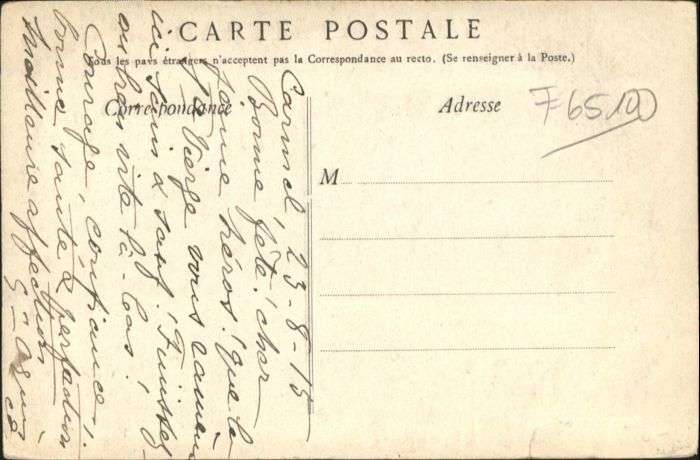 CARTE POSTALE
Tous les pays étrangers n'acceptent pas la Correspondance au recto. (Se renseigner à la Poste.)
Correspondance
Adresse
M
Carmel, 23-8-15
Bonne fête! cher
jeune héros! que la
Ste Vierge vous ramène
ici sain & sauf! Finissez
en bien vite là-bas!
Courage, confiance,
bonne santé & perfection
Meilleure affection